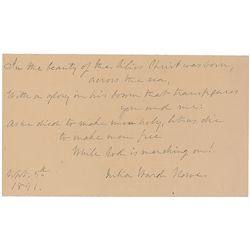 In the beauty of the lilies Christ was born,
across the sea,
With a glory in his bosom that transfigures
you and me:
As he died to make men holy, let us die
to make men free
While God is marching on!
Sept. 5th
1891. Julia Ward Howe.